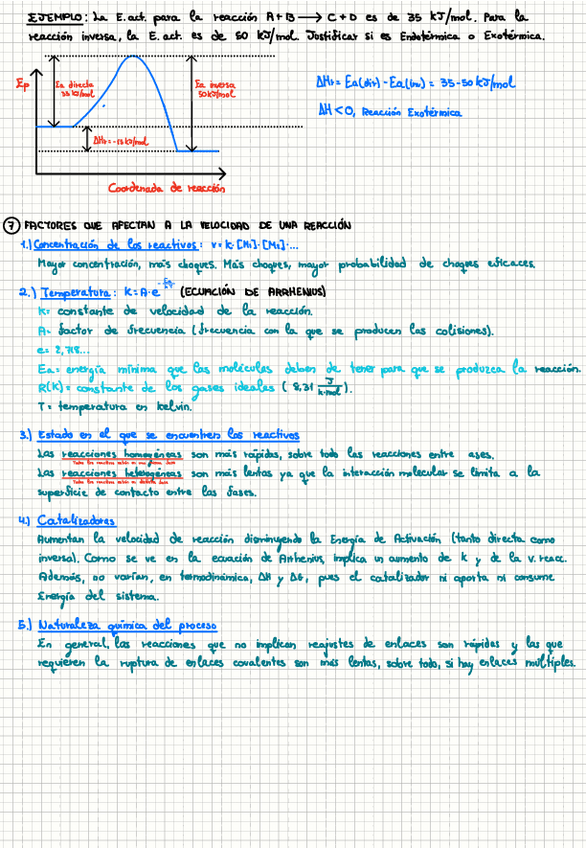 EJEMPLO: La E.act. para la reacción A+B → C+D es de 35 kJ/mol. Para la
reacción inversa, la E. act. es de 50 kJ/mol. Justificar si es Endotérmica o Exotérmica.
Ep
Ea directa
35 kJ/mol
Ea inversa
50 kJ/mol
ΔHr = -15 kJ/mol
Coordenada de reacción
ΔHr = Ea(dir) - Ea(inv) = 35-50 kJ/mol
ΔH < 0, Reacción Exotérmica
7 FACTORES QUE AFECTAN A LA VELOCIDAD DE UNA REACCIÓN
1.) Concentración de los reactivos: v = k·[M1]·[M2]·...
Mayor concentración, más choques. Más choques, mayor probabilidad de choques eficaces.
2.) Temperatura: K = A·e (ECUACIÓN DE ARRHENIUS)
K= constante de velocidad de la reacción.
A= factor de frecuencia (frecuencia con la que se producen las colisiones).
e= 2,718...
Ea= energía mínima que las moléculas deben de tener para que se produzca la reacción.
R(K)= constante de los gases ideales (8,31 J/k·mol).
T= temperatura en kelvin.
3.) Estado en el que se encuentren los reactivos
Las reacciones homogéneas son más rápidas, sobre todo las reacciones entre gases.
Todos los reactivos están en una misma fase
Las reacciones heterogéneas son más lentas ya que la interacción molecular se limita a la
Todos los reactivos están en distinta fase
superficie de contacto entre las fases.
4.) Catalizadores
Aumentan la velocidad de reacción disminuyendo la Energía de Activación (tanto directa como
inversa). Como se ve en la ecuación de Arrhenius, implica un aumento de k y de la v. reacc.
Además, no varían, en termodinámica, ΔH y ΔG, pues el catalizador ni aporta ni consume
Energía del sistema.
5.) Naturaleza química del proceso
En general, las reacciones que no implican reajustes de enlaces son rápidas y las que
requieren la ruptura de enlaces covalentes son más lentas, sobre todo, si hay enlaces múltiples.